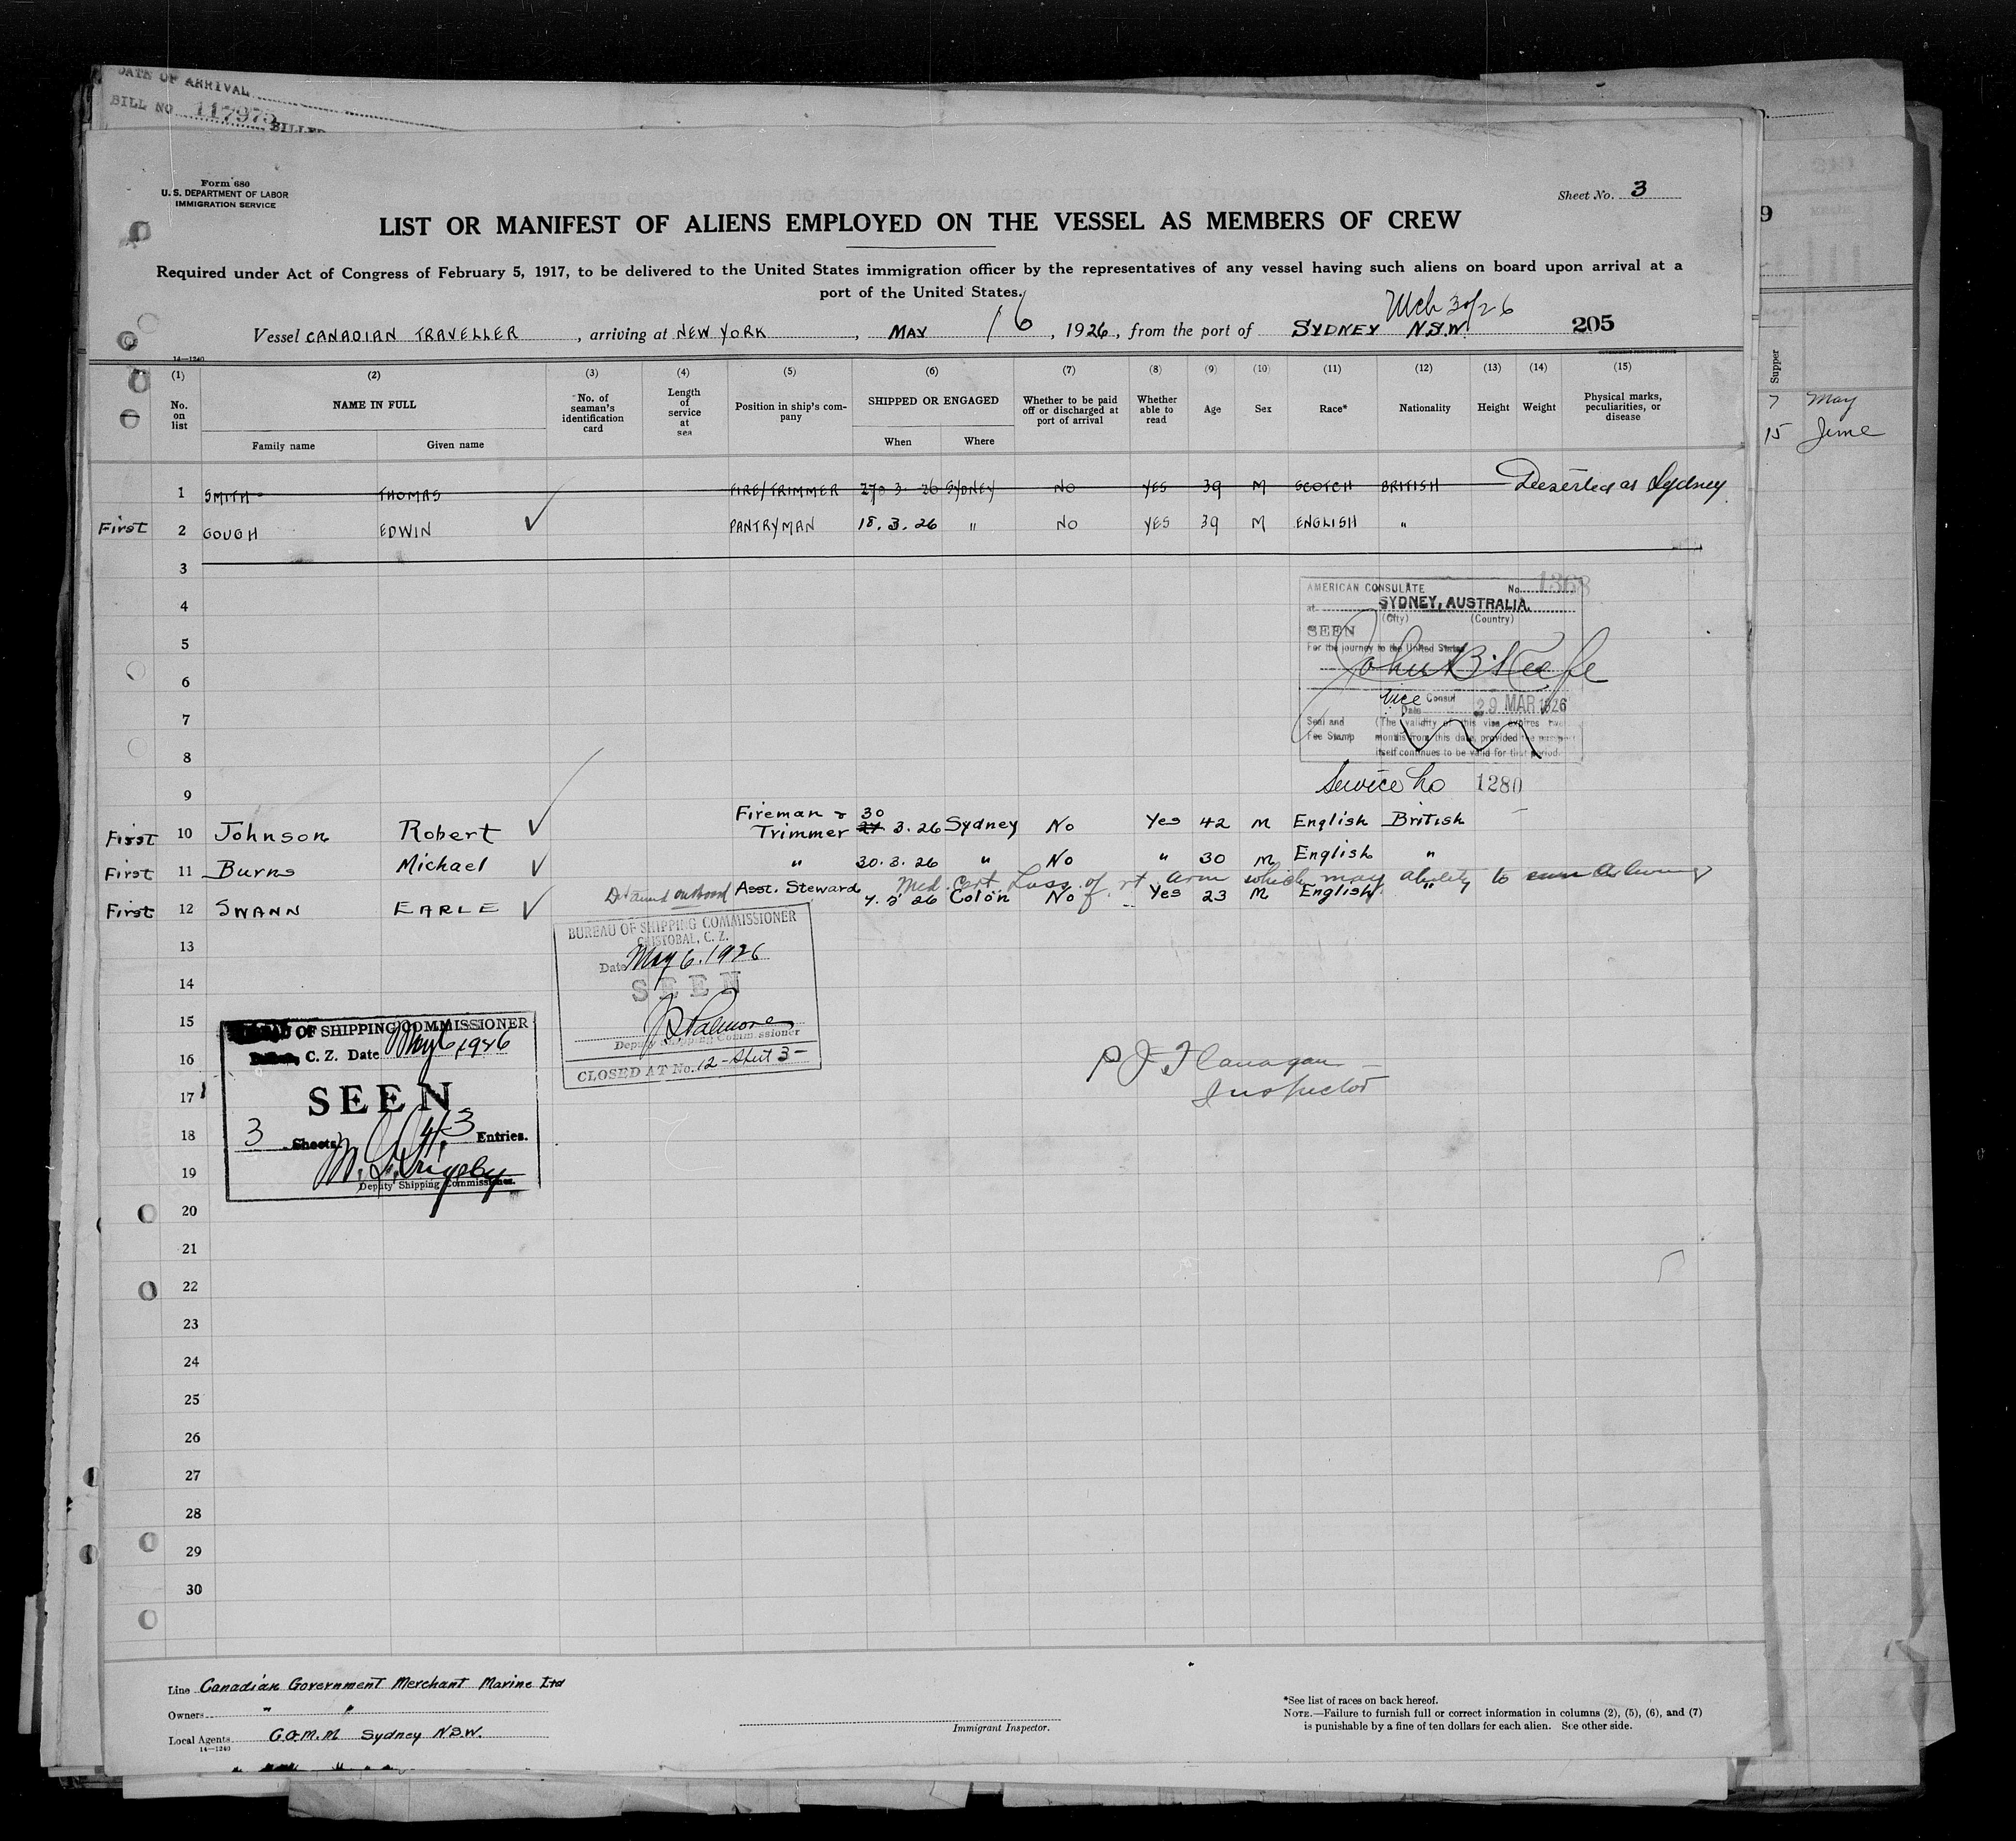 DATE OF ARRIVAL
BILL NO. 117975 BILLED
Form 680
U. S. DEPARTMENT OF LABOR
IMMIGRATION SERVICE
Sheet No. 3
LIST OR MANIFEST OF ALIENS EMPLOYED ON THE VESSEL AS MEMBERS OF CREW
Required under Act of Congress of February 5, 1917, to be delivered to the United States immigration officer by the representatives of any vessel having such aliens on board upon arrival at a
port of the United States.
Mch 30/26
Vessel CANADIAN TRAVELLER, arriving at NEW YORK, MAY 16, 1926, from the port of SYDNEY N.S.W. 205
14—1240
(1) (2) (3) (4) (5) (6) (7) (8) (9) (10) (11) (12) (13) (14) (15)
No. on list
NAME IN FULL
Family name Given name
No. of seaman's identification card
Length of service at sea
Position in ship's company
SHIPPED OR ENGAGED
When Where
Whether to be paid off or discharged at port of arrival
Whether able to read
Age Sex Race* Nationality Height Weight
Physical marks, peculiarities, or disease
1 SMITH THOMAS FIRE/TRIMMER 27 3 26 SYDNEY NO YES 39 M SCOTCH BRITISH Deserted at Sydney
First 2 GOUGH EDWIN PANTRYMAN 18.3.26 " NO YES 39 M ENGLISH "
3
4
5
6
7
8
9
AMERICAN CONSULATE No. 1368
at SYDNEY, AUSTRALIA.
(City) (Country)
SEEN
For the journey to the United States
Vice Consul
Date 29 MAR 1926
Seal and Fee Stamp
(The validity of this visa expires two
months from this date, provided the passport
itself continues to be valid for that period.
Service No 1280
First 10 Johnson Robert Fireman & Trimmer 30 27 3.26 Sydney No Yes 42 M English British
First 11 Burns Michael " 30.3.26 " No " 30 M English "
Med. Cert. Loss of rt arm which may ability to
First 12 SWANN EARLE Detained onboard Asst. Steward 7.5 26 Colon No Yes 23 M English "
13
14
15
16
17
18
19
20
21
22
23
24
25
26
27
28
29
30
BUREAU OF SHIPPING COMMISSIONER
CRISTOBAL, C. Z.
Date May 6. 1926
SEEN
Deputy Shipping Commissioner
CLOSED AT No. 12 - Sheet 3 -
OF SHIPPING COMMISSIONER
C. Z. Date May 6, 1926
SEEN
3 Sheets 43 Entries.
Deputy Shipping Commissioner.
P J Flanagan
Inspector
Line Canadian Government Merchant Marine Ltd
Owners " "
Local Agents C.G.M.M Sydney N.S.W.
14—1240
Immigrant Inspector.
*See list of races on back hereof.
NOTE.—Failure to furnish full or correct information in columns (2), (5), (6), and (7)
is punishable by a fine of ten dollars for each alien. See other side.
9
Supper
7 May
15 June